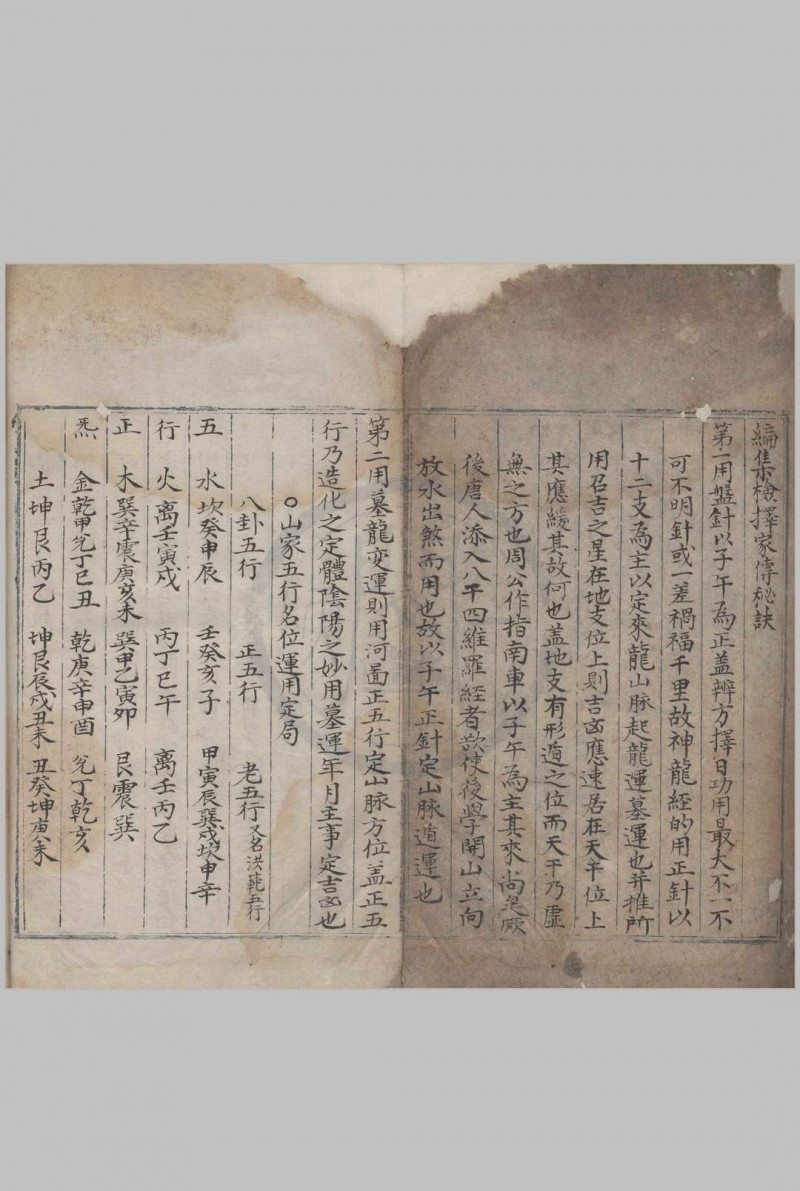 編集檢擇家傳秘訣
第一用盤針以子午為正盖辨方擇日功用最大不一不
可不明針或一差禍福千里故神龍經的用正針以
十二支為主以定來龍山脉起龍運墓運也并推所
用召吉之星在地支位上則吉凶應速居在天干位上
其應緩其故何也盖地支有形遁之位而天干乃虛
無之方也周公作指南車以子午為主其來尚矣厥
後唐人添入八干四維羅經者欲使後學開山立向
放水出煞而用也故以子午正針定山脉遁運也
第二用墓龍变運則用河啚正五行定山脉方位盖正五
行乃造化之定體隂陽之妙用墓運年月主事定吉凶也
○山家五行名位運用定局
八卦五行 正五行 老五行又名洪範五行
五 水坎癸申辰 壬癸亥子 甲寅辰巽戌坎申辛
行 火離壬寅戌 丙丁巳午 離壬丙乙
正 木巽辛震庚亥未 巽甲乙寅卯 艮震巽
炁 金乾甲兊丁巳丑 乾庚辛申酉 兊丁乾亥
土坤艮丙乙 坤艮辰戌丑未 丑癸坤庚未